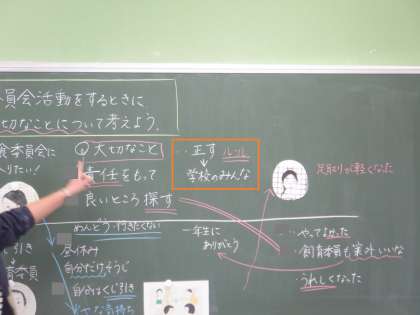 員会活動をするときに
切なことについて考えよう。
食委員会に
りたい!
④大切なこと
責任をもって
良いところ探す
・・正す ルール
↓
学校のみんな
足取りが軽くなった
めんどう・行きたくない
昼休み
自分だけそうじ
くじ引き
一年生に
ありがとう
・・やってよかった
・・飼育委員も案外いいな
うれしくなった
じ引き
育委員
な気持ち